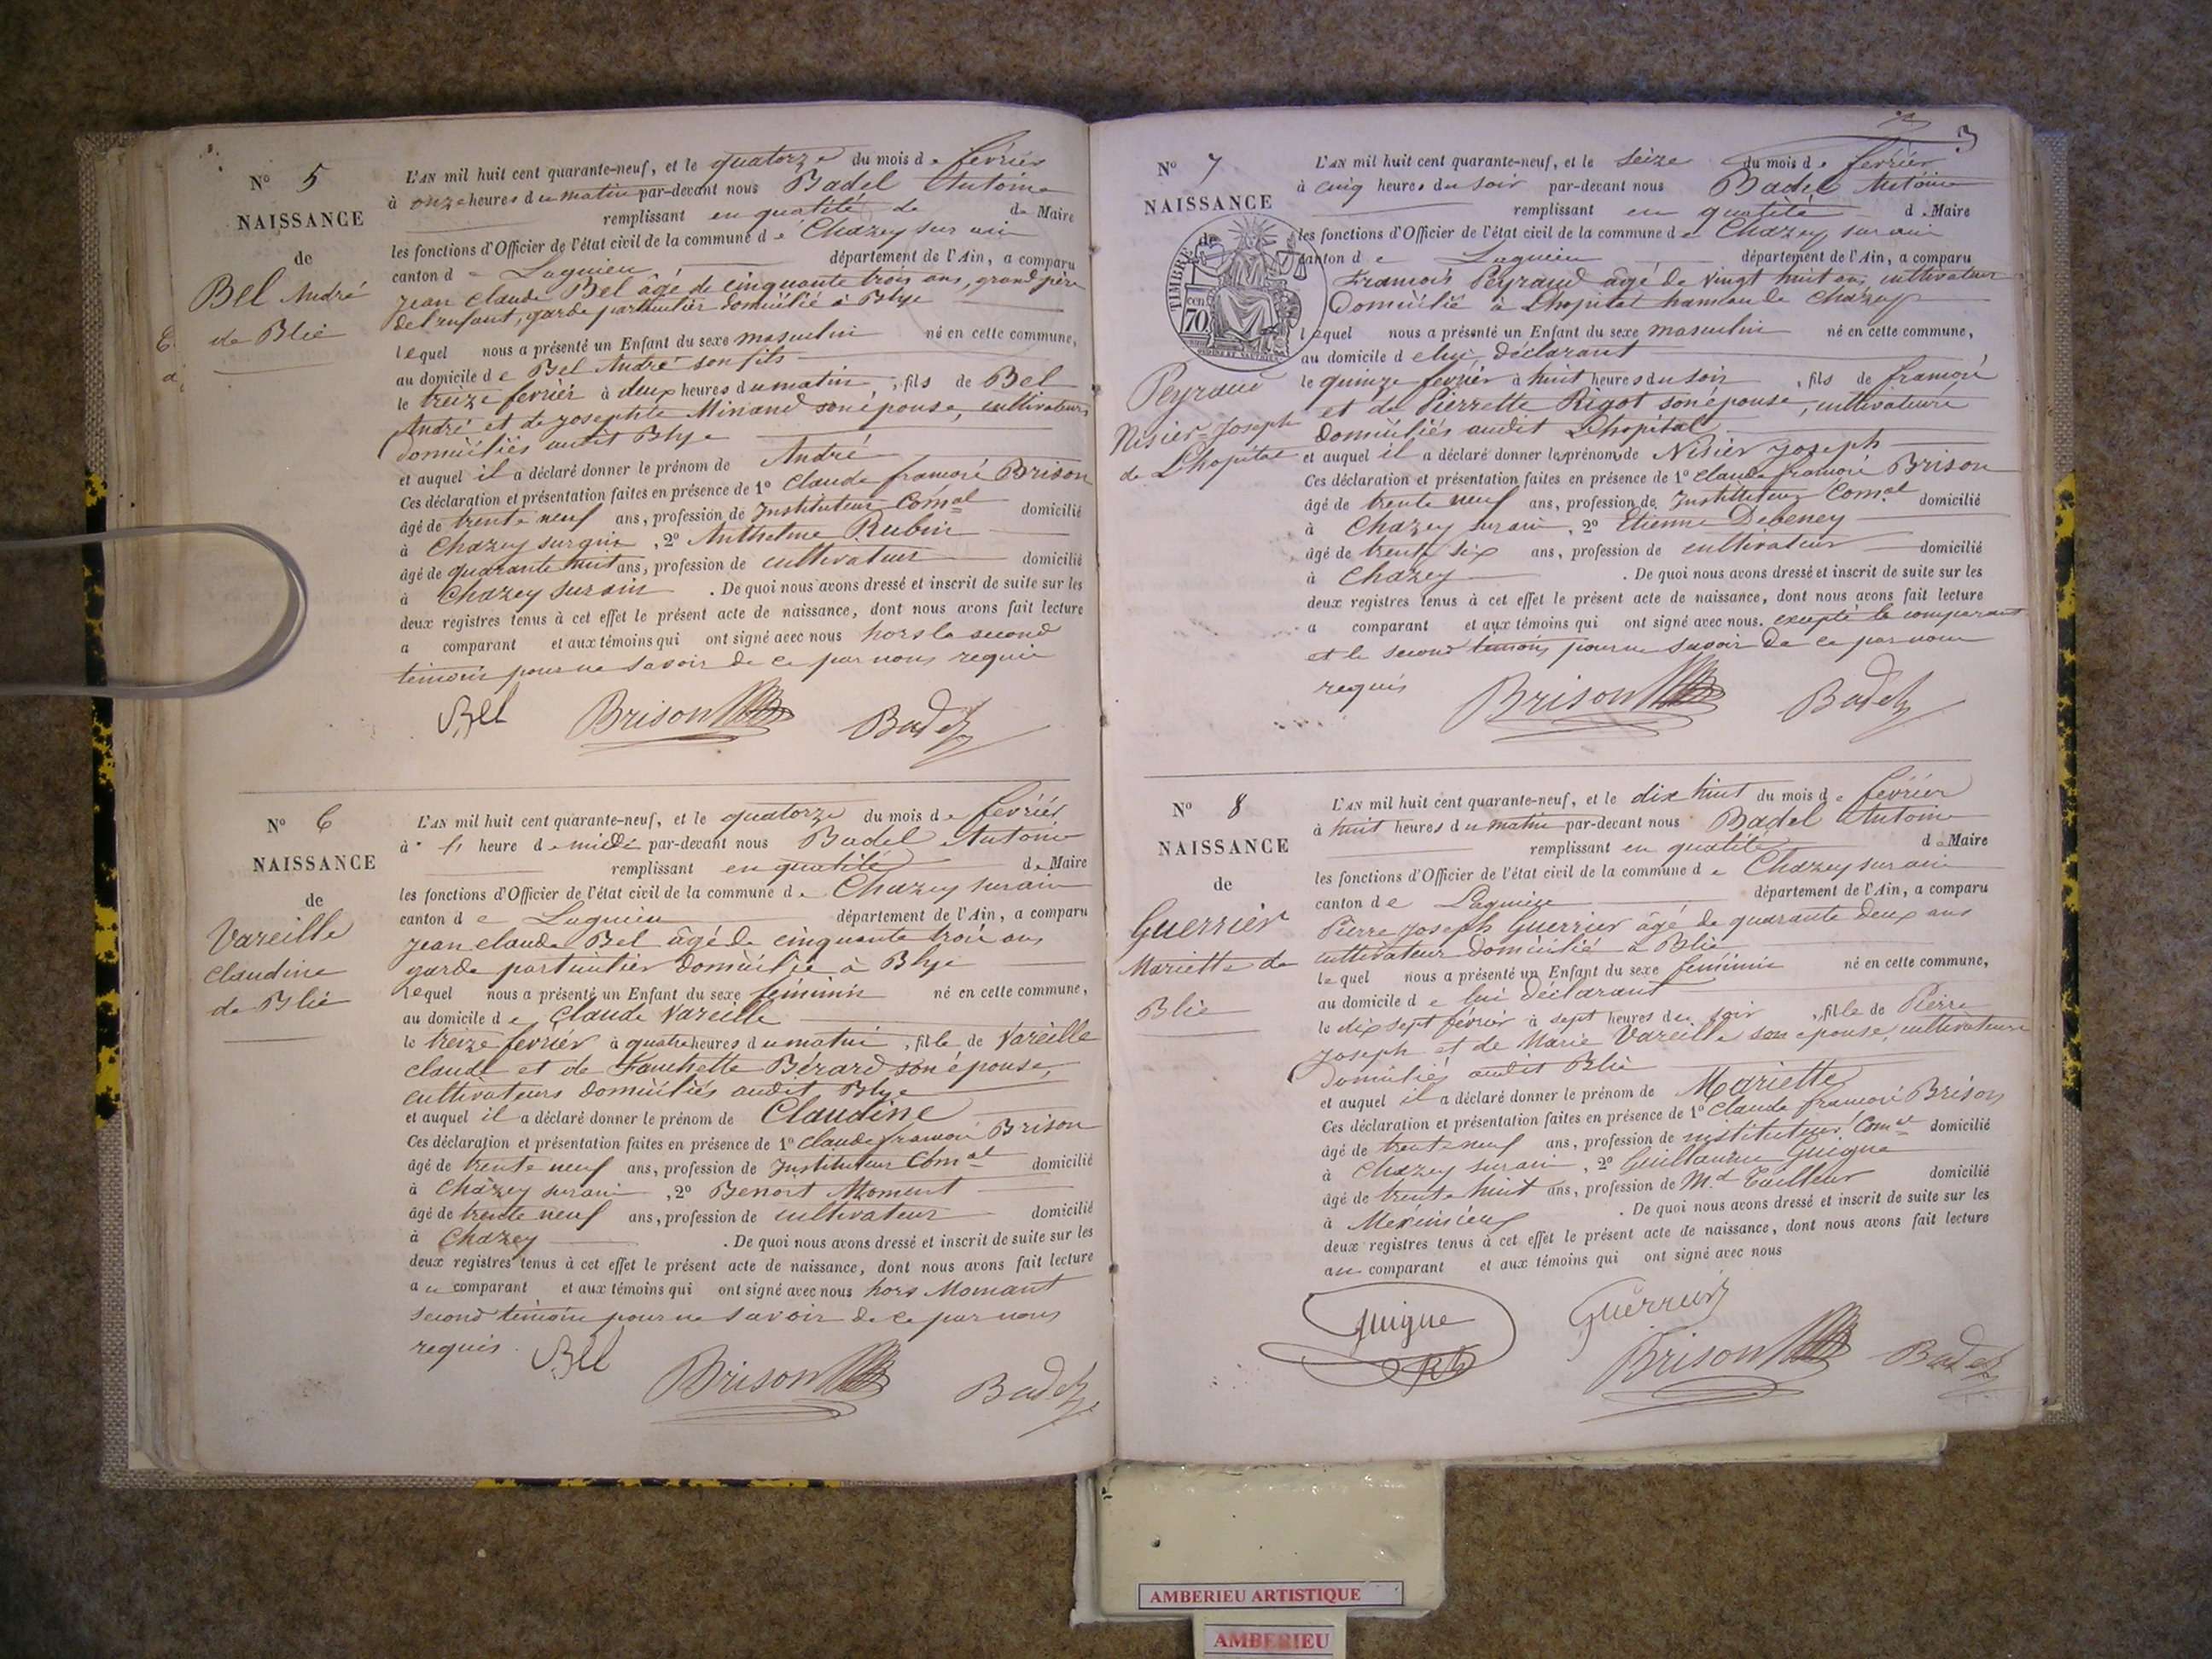 N° 5
NAISSANCE
de
Bel André
de Blie
L'AN mil huit cent quarante-neuf, et le quatorze du mois de février
à onze heures du matin par-devant nous Badel Antoine
remplissant en qualité de de Maire
les fonctions d'Officier de l'état civil de la commune de Chazey sur ain
canton de Lagnieu département de l'Ain, a comparu
Jean Claude Bel âgé de cinquante trois ans, grand père
de l'enfant, garde particulier domicilié à Blye
lequel nous a présenté un Enfant du sexe masculin né en cette commune,
au domicile de Bel André son fils
le treize février à deux heures du matin, fils de Bel
André et de Josephte Minand son épouse, cultivateurs
domiciliés audit Blye
et auquel il a déclaré donner le prénom de André
Ces déclaration et présentation faites en présence de 1° Claude françois Brison
âgé de trente neuf ans, profession de Instituteur Comal domicilié
à Chazey sur ain, 2° Anthelme Rubin
âgé de quarante huit ans, profession de cultivateur domicilié
à Chazey sur ain. De quoi nous avons dressé et inscrit de suite sur les
deux registres tenus à cet effet le présent acte de naissance, dont nous avons fait lecture
a comparant et aux témoins qui ont signé avec nous hors le second
témoin pour ne savoir de ce par nous requis
Bel Brison Badel
N° 6
NAISSANCE
de
Vareille
Claudine
de Blie
L'AN mil huit cent quarante-neuf, et le quatorze du mois de février
à heure de midi par-devant nous Badel Antoine
remplissant en qualité de Maire
les fonctions d'Officier de l'état civil de la commune de Chazey sur ain
canton de Lagnieu département de l'Ain, a comparu
Jean claude Bel âgé de cinquante trois ans
garde particulier domicilié à Blye
lequel nous a présenté un Enfant du sexe féminin né en cette commune,
au domicile de Claude Vareille
le treize février à quatre heures du matin, fille de Vareille
claude et de Fanchette Bérard son épouse,
cultivateurs domiciliés audit Blye
et auquel il a déclaré donner le prénom de Claudine
Ces déclaration et présentation faites en présence de 1° Claude françois Brison
âgé de trente neuf ans, profession de Instituteur Comal domicilié
à Chazey sur ain, 2° Benoit Moment
âgé de trente neuf ans, profession de cultivateur domicilié
à Chazey. De quoi nous avons dressé et inscrit de suite sur les
deux registres tenus à cet effet le présent acte de naissance, dont nous avons fait lecture
au comparant et aux témoins qui ont signé avec nous hors Momant
second témoin pour ne savoir de ce par nous
requis. Bel Brison Badel
3
N° 7
NAISSANCE
de
TIMBRE
cen 70
Peyraud
Nisier-Joseph
de Lhopital
L'AN mil huit cent quarante-neuf, et le seize du mois de février
à cinq heures du soir par-devant nous Badel Antoine
remplissant en qualité de Maire
les fonctions d'Officier de l'état civil de la commune de Chazey sur ain
canton de Lagnieu département de l'Ain, a comparu
François Peyraud âgé de vingt huit ans, cultivateur
Domicilié à Lhopital hameau de Chazey
lequel nous a présenté un Enfant du sexe masculin né en cette commune,
au domicile de lui, déclarant
le quinze février à huit heures du soir, fils de françois
et de Pierrette Rigot son épouse, cultivateurs
domiciliés audit Lhopital
et auquel il a déclaré donner les prénoms de Nisier Joseph
Ces déclaration et présentation faites en présence de 1° Claude françois Brison
âgé de trente neuf ans, profession de Instituteur Comal domicilié
à Chazey sur ain, 2° Etienne Debeney
âgé de trente six ans, profession de cultivateur domicilié
à Chazey. De quoi nous avons dressé et inscrit de suite sur les
deux registres tenus à cet effet le présent acte de naissance, dont nous avons fait lecture
a comparant et aux témoins qui ont signé avec nous. excepté le comparant
et le second témoins pour ne savoir de ce par nous
requis Brison Badel
N° 8
NAISSANCE
de
Guerrier
Mariette de
Blie
L'AN mil huit cent quarante-neuf, et le dix huit du mois de février
à huit heures du matin par-devant nous Badel Antoine
remplissant en qualité de Maire
les fonctions d'Officier de l'état civil de la commune de Chazey sur ain
canton de Lagnieu département de l'Ain, a comparu
Pierre Joseph Guerrier âgé de quarante deux ans
cultivateur domicilié à Blie
lequel nous a présenté un Enfant du sexe féminin né en cette commune,
au domicile de lui déclarant
le dix sept février à sept heures du soir, fille de Pierre
Joseph et de Marie Vareille son épouse, cultivateurs
Domiciliés audit Blie
et auquel il a déclaré donner le prénom de Mariette
Ces déclaration et présentation faites en présence de 1° Claude françois Brison
âgé de trente neuf ans, profession de instituteur Comal domicilié
à Chazey sur ain, 2° Guillaume Guigue
âgé de trente huit ans, profession de Md Tailleur domicilié
à Méximieux. De quoi nous avons dressé et inscrit de suite sur les
deux registres tenus à cet effet le présent acte de naissance, dont nous avons fait lecture
au comparant et aux témoins qui ont signé avec nous
Guigue Guerrier
Brison Badel
AMBERIEU ARTISTIQUE
AMBERIEU